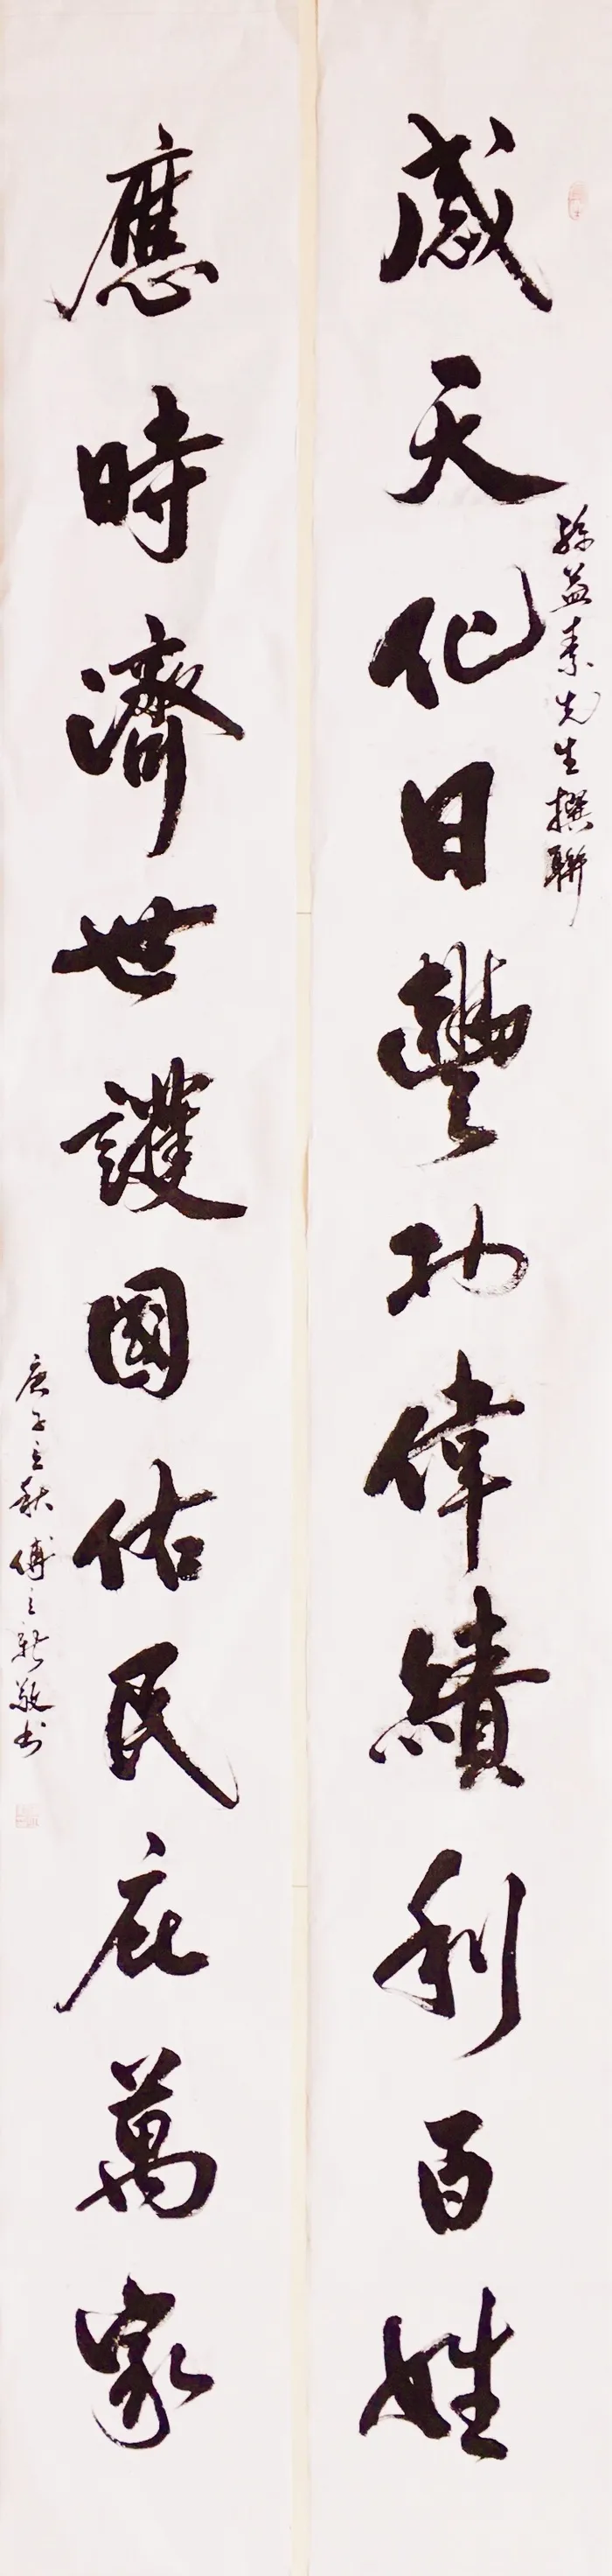 感天化日豐功偉績利百姓
孫益素先生撰聯
應時濟世護國佑民庇萬家
庚子立秋傅之新敬书